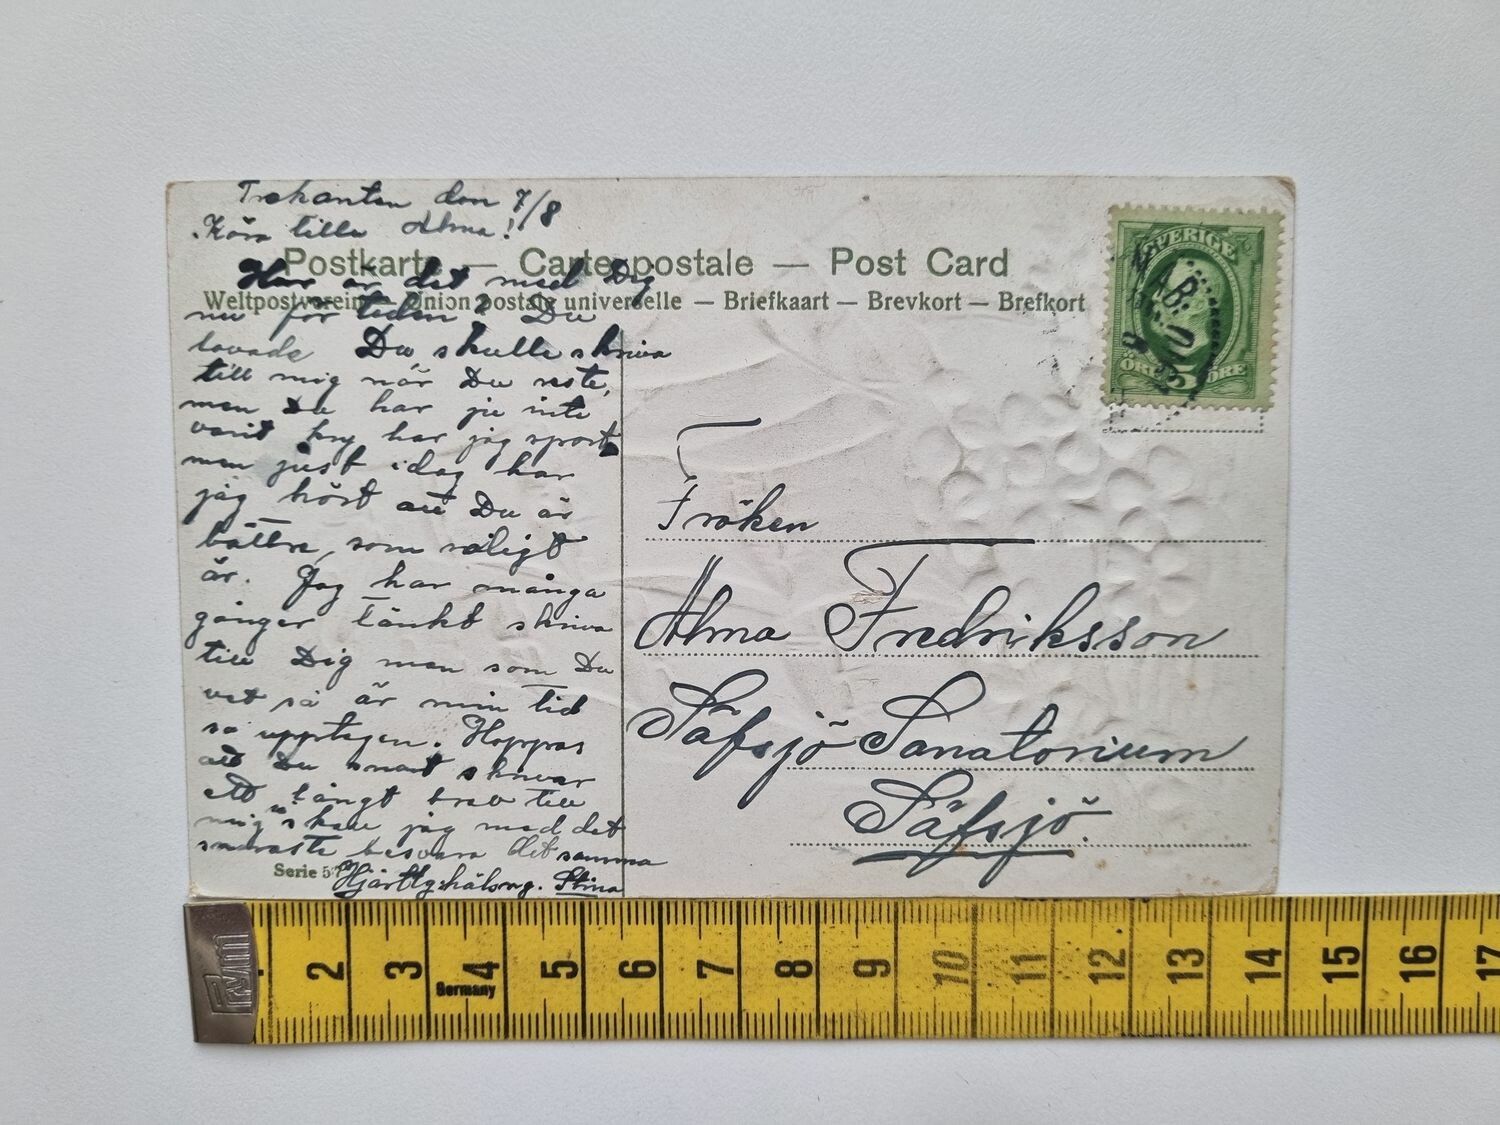 Trekanten den 7/8
Kära lilla Alma!
Postkarte — Carte postale — Post Card
Hur är det med Dig
Weltpostverein — Union postale universelle — Briefkaart — Brevkort — Brefkort
nu för tiden? Du
lovade Du skulle skriva
till mig när Du reste,
men Du har ju inte
varit kry har jag sport
men just idag har
jag hört att Du är
bättre, som roligt
är. Jag har många
gånger tänkt skriva
till Dig men som Du
vet så är min tid
så upptagen. Hoppas
att Du snart skriver
ett långt brev till
mig så skall jag med det
snaraste besvara det samma
Serie 57
Hjärtl. hälsng. Stina
SVERIGE
5
ÖRE ÖRE
Fröken
Alma Fredriksson
Säfsjö Sanatorium
Säfsjö.
Prym
2 3 4 5 6 7 8 9 10 11 12 13 14 15 16 17
Germany